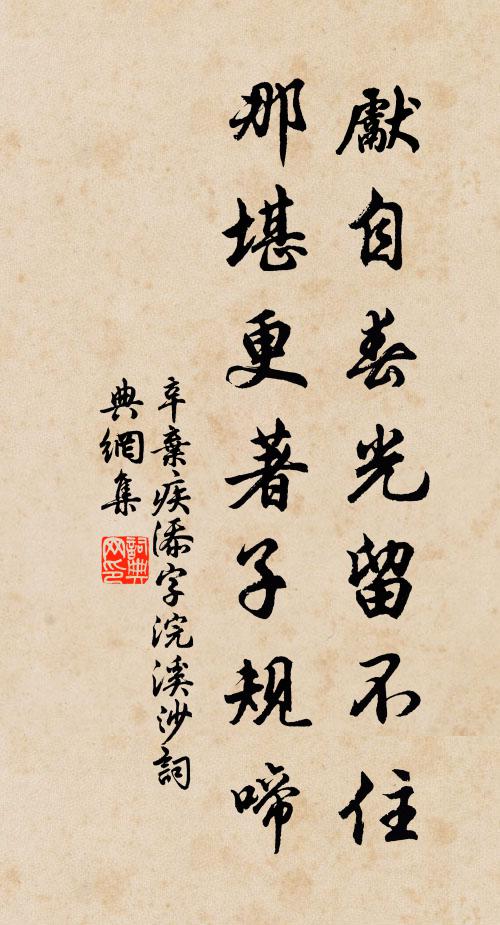 獻自春光留不住
那堪更著子規啼
辛棄疾添字浣溪沙詞
典網集
詞典
网印